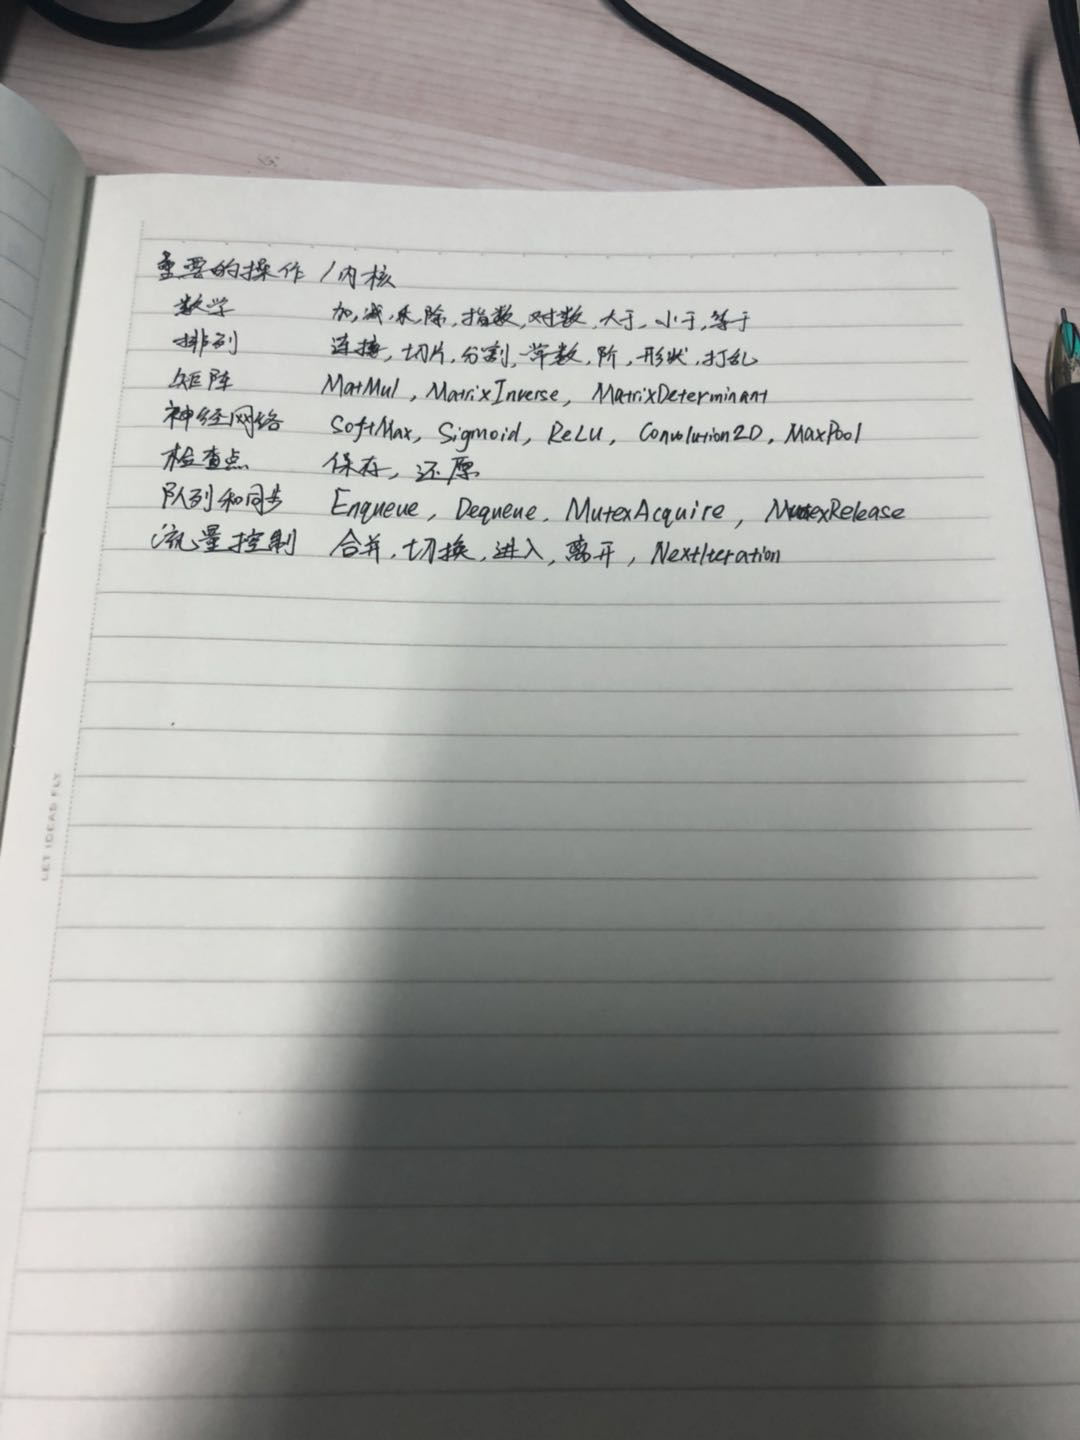 重要的操作 / 内核
数学 加, 减, 乘, 除, 指数, 对数, 大于, 小于, 等于
排列 连接, 切片, 分割, 常数, 阶, 形状, 打乱
矩阵 MatMul, MatrixInverse, MatrixDeterminant
神经网络 SoftMax, Sigmoid, ReLU, Convolution2D, MaxPool
检查点 保存, 还原
队列和同步 Enqueue, Dequeue, MutexAcquire, MutexRelease
流量控制 合并, 切换, 进入, 离开, NextIteration
LET IDEAS FLY